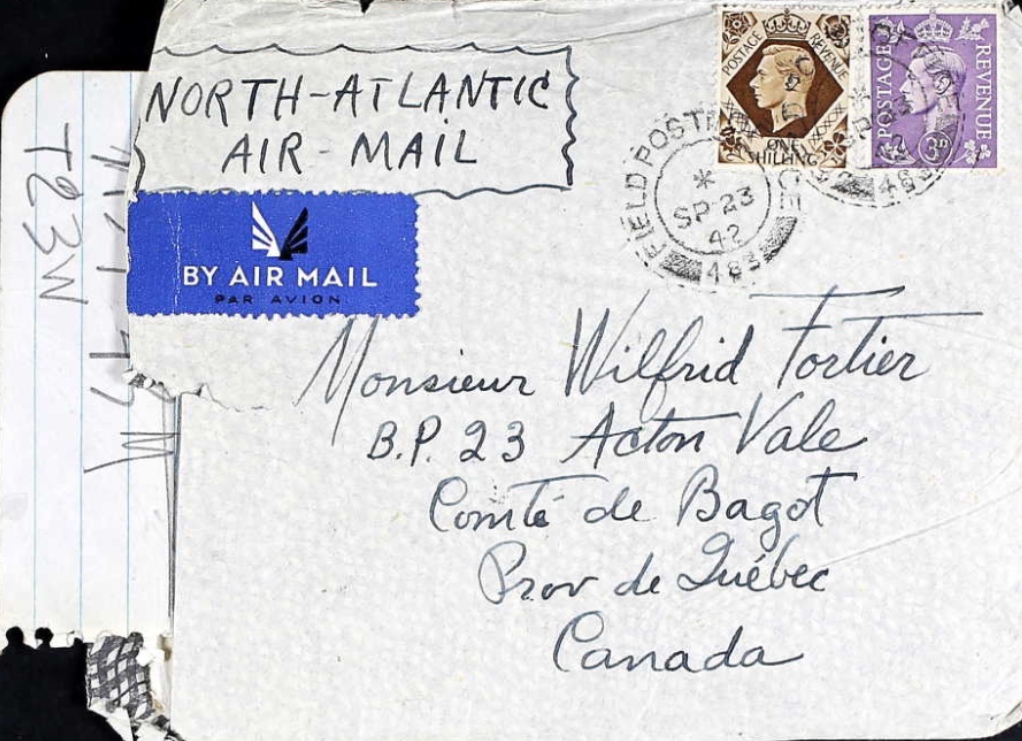 NORTH-ATLANTIC
AIR-MAIL
BY AIR MAIL
PAR AVION
POSTAGE REVENUE
ONE
SHILLING
POSTAGE REVENUE
3D
FIELD POST OFFICE
*
SP 23
42
Monsieur Wilfrid Fortier
B.P. 23 Acton Vale
Comté de Bagot
Prov de Québec
Canada
T23W